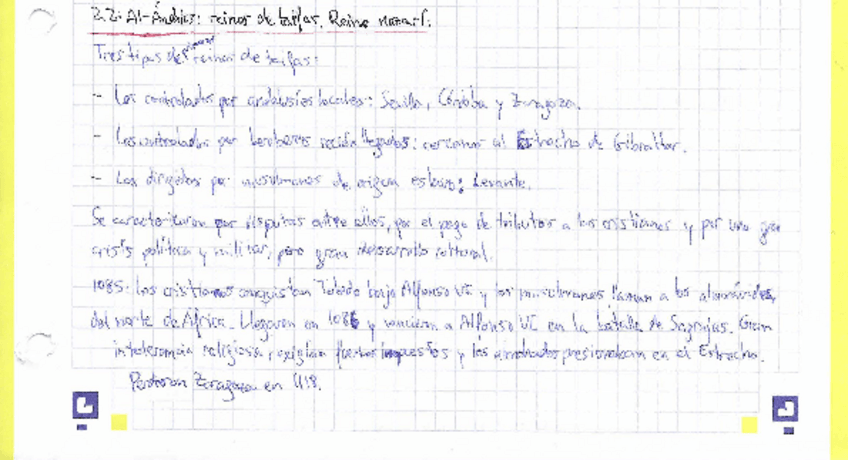 2.2: Al-Ándalus: reinos de taifas. Reino nazarí.
Tres tipos de reinos de taifas:
- Los controlados por andalusíes locales: Sevilla, Córdoba y Zaragoza.
- Los controlados por bereberes recién llegados: cercanos al Estrecho de Gibraltar.
- Los dirigidos por musulmanes de origen eslavo: Levante.
Se caracterizaron por disputas entre ellos, por el pago de tributos a los cristianos y por una gran
crisis política y militar, pero gran desarrollo cultural.
1085: Los cristianos conquistan Toledo bajo Alfonso VI y los musulmanes llaman a los almorávides,
del norte de África. Llegaron en 1086 y vencieron a Alfonso VI en la batalla de Sagrajas. Gran
intolerancia religiosa, exigían fuertes impuestos y los almohades presionaban en el Estrecho.
Perdieron Zaragoza en 1118.